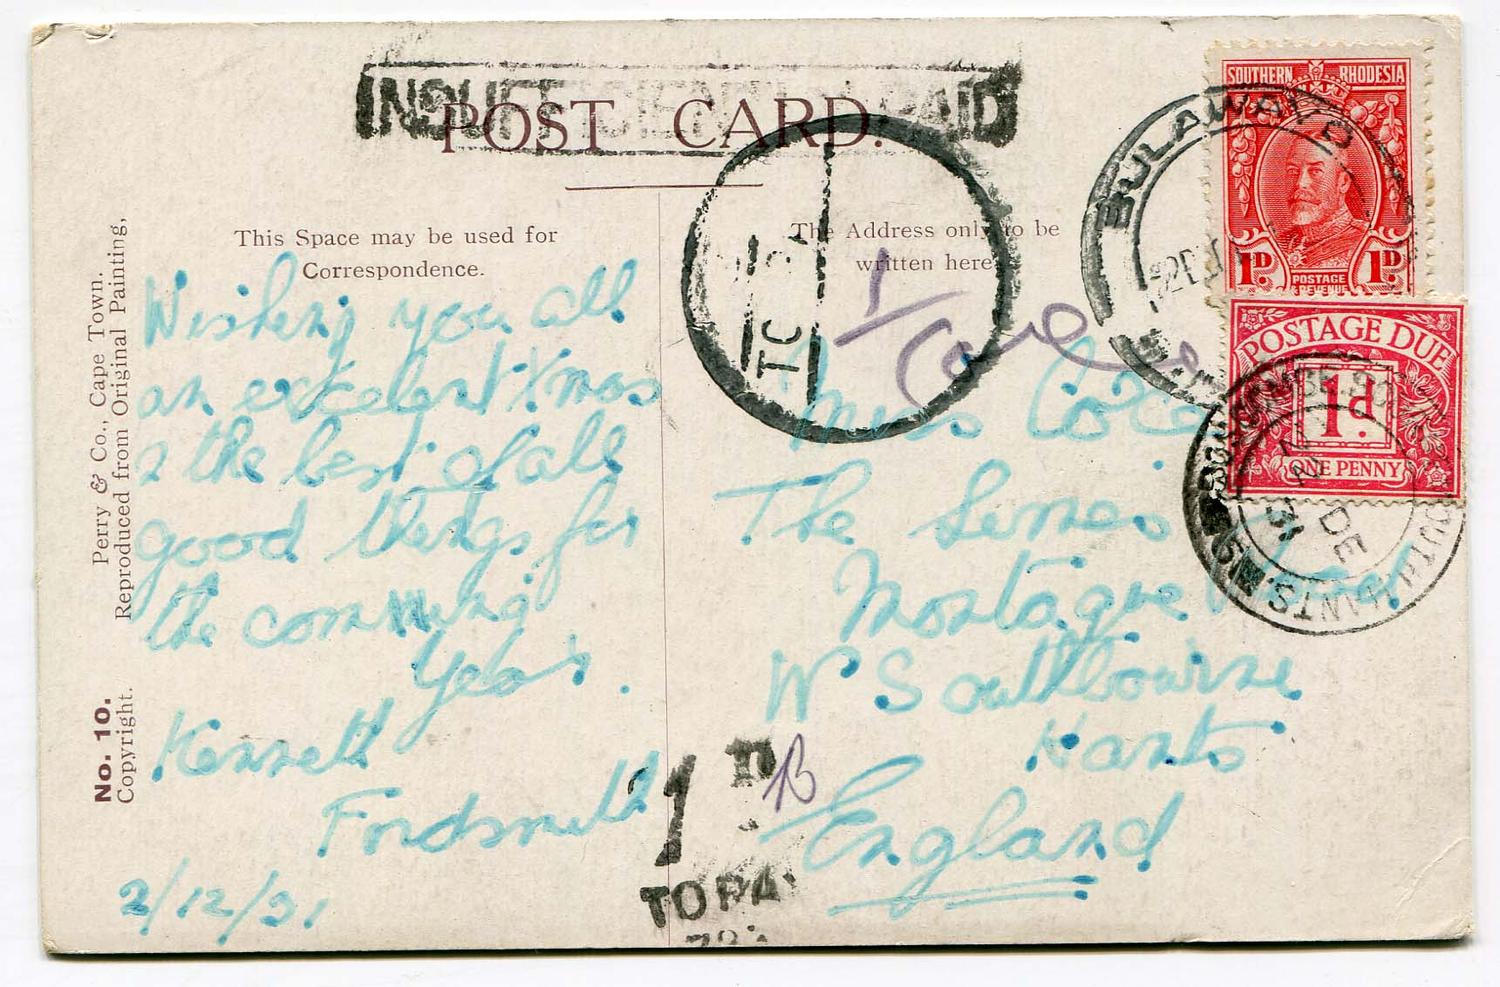 INSUFFICIENTLY PAID
POST CARD.
This Space may be used for
Correspondence.
The Address only to be
written here.
No. 10.
Perry & Co., Cape Town.
Copyright. Reproduced from Original Painting,
Wishing you all
an excelent Xmas
& the best of all
good things for
the comming
Year.
Kennett
Fordsmith
2/12/31
Miss
The
Montague
W Southbourne
Hants
England
SOUTHERN RHODESIA
1D. POSTAGE & REVENUE 1D.
BULAWAYO
POSTAGE DUE
1d.
ONE PENNY
SOUTHBOURNE
DE
31
HANTS.
T
1D
TO PAY